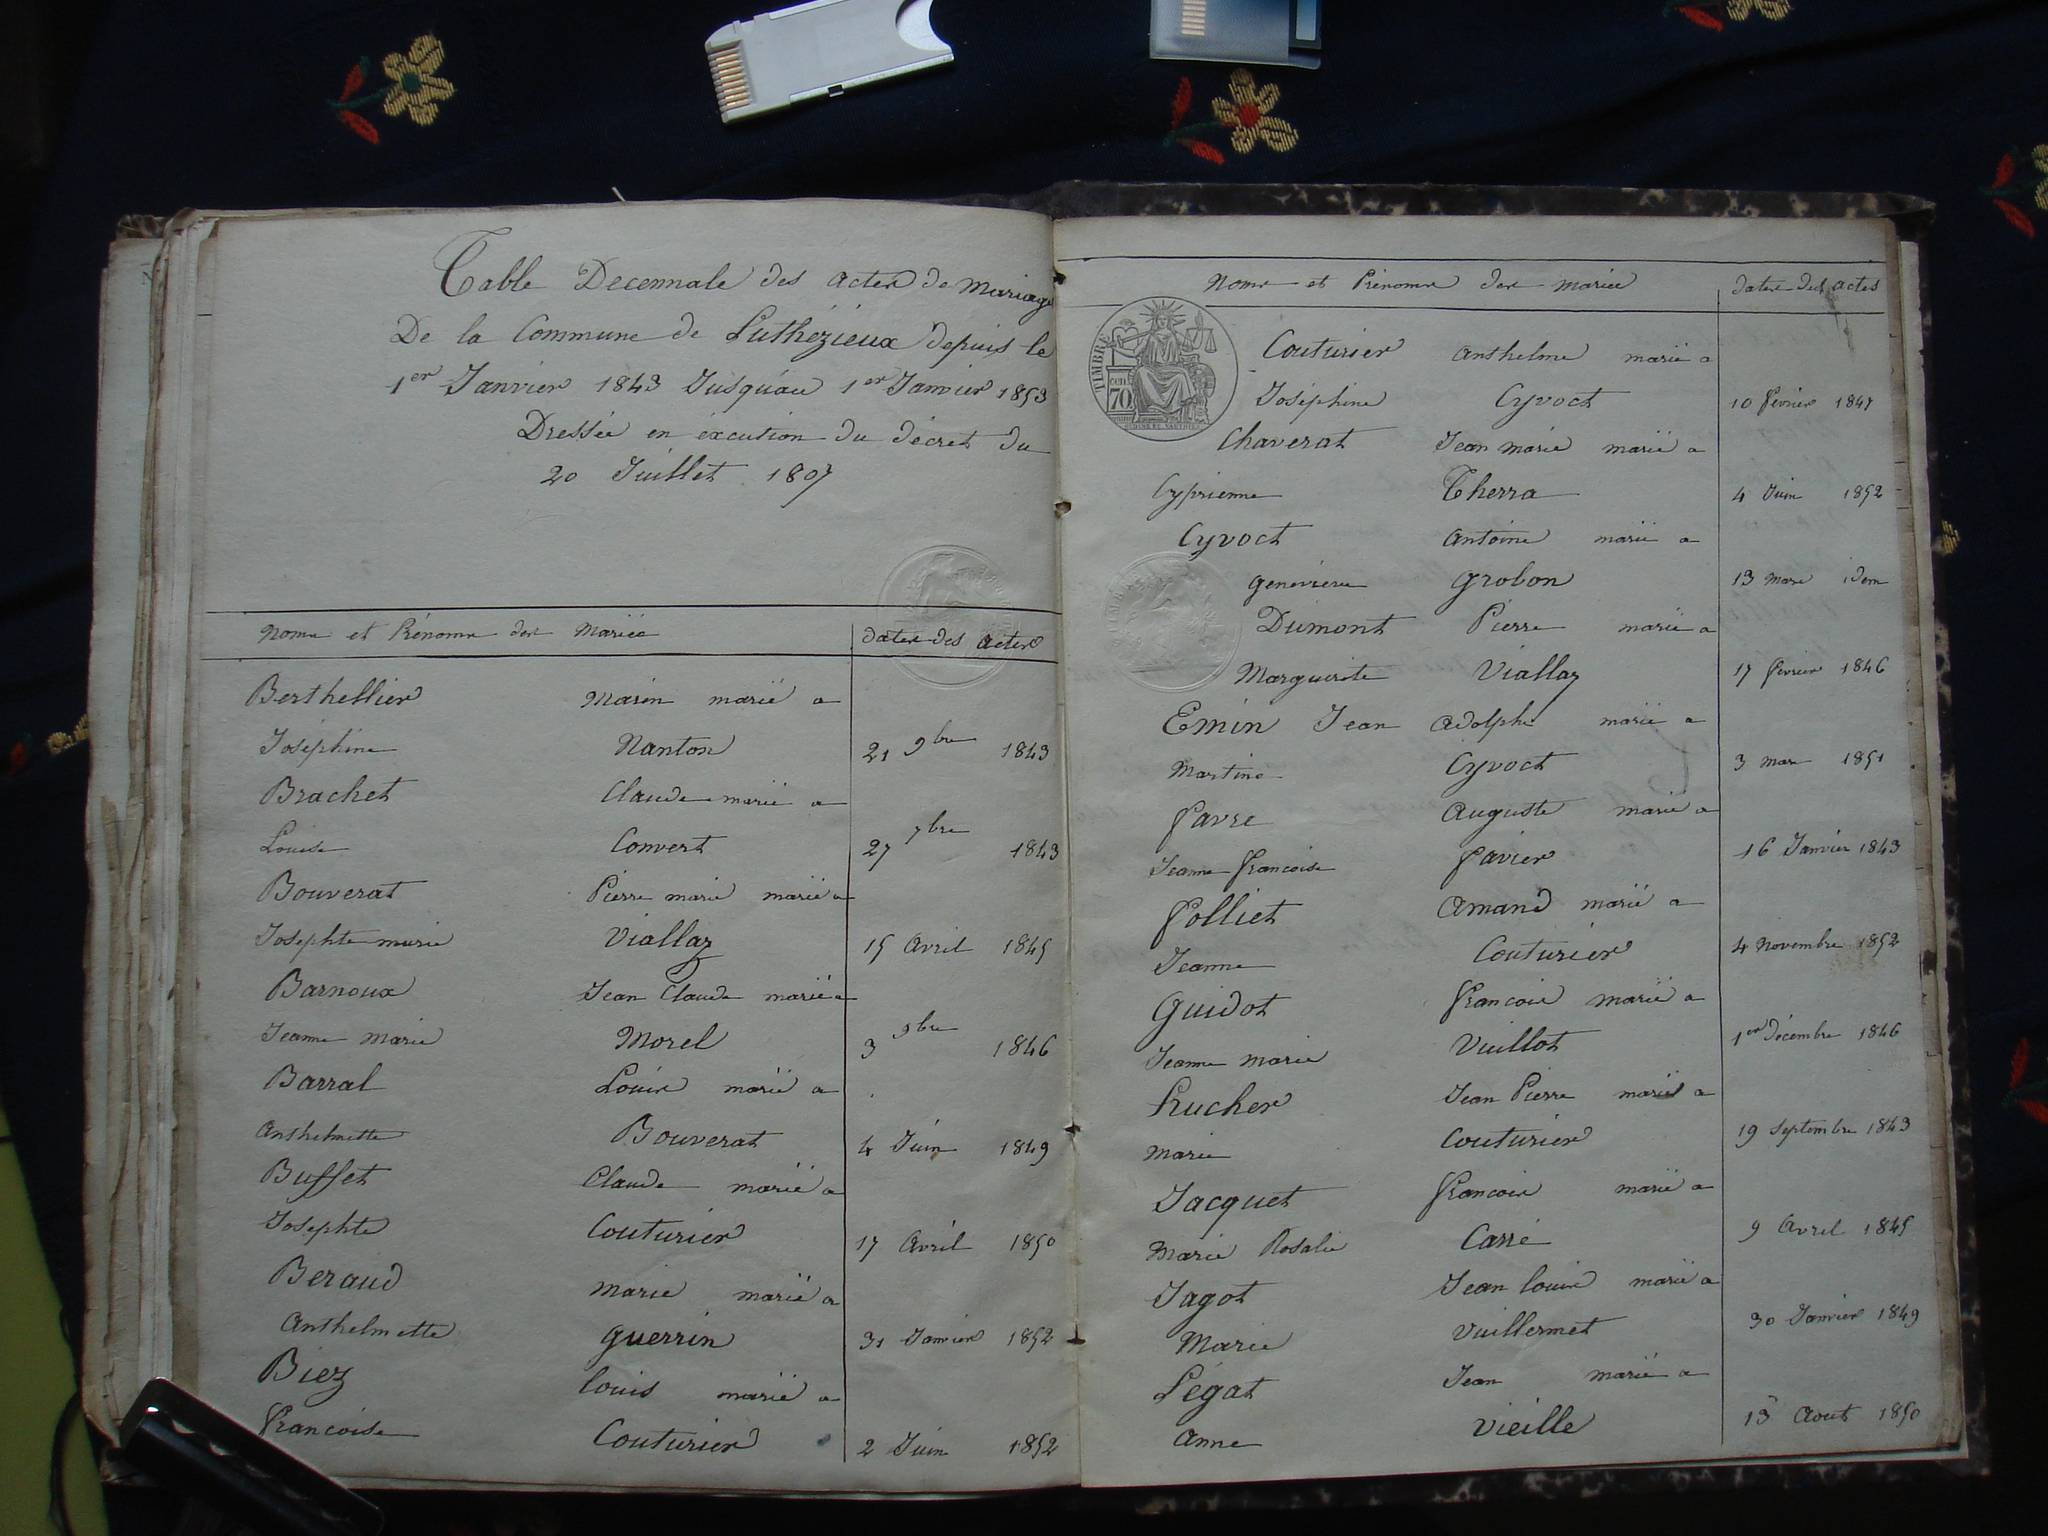 Table Decennale des actes de mariage
De la Commune de Luthézieux depuis le
1er Janvier 1843 Jusqu'au 1er Janvier 1853
Dressée en éxcution du décret du
20 Juillet 1807
Noms et Prénoms des Mariés
dates des actes
Berthellier Marin marié a
Joséphine Nanton 21 9bre 1843
Brachet Claude marié a
Louise Convert 27 7bre 1843
Bouverat Pierre marie marié a
Josephte marie Viallaz 15 Avril 1845
Barnoux Jean Claude marié a
Jeanne marie Morel 3 9bre 1846
Barral Louis marié a
Anthelmette Bouverat 4 Juin 1849
Buffet Claude marié a
Josephte Couturier 17 Avril 1850
Beraud Marie marié a
Anthelmette Guerrin 31 Janvier 1852
Biez Louis marié a
Francoise Couturier 2 Juin 1852
Noms et Prénoms des mariés
dates des actes
TIMBRE
cent.
70
Couturier Anthelme marié a
Joséphine Cyvoct 10 février 1847
Chaverat Jean marie marié a
Cyprienne Therra 4 Juin 1852
Cyvoct Antoine marié a
Genevieve Grobon 13 Mars idem
Dumont Pierre marié a
Marguerite Viallaz 17 fevrier 1846
Emin Jean Adolphe marié a
Martine Cyvoct 3 mars 1851
Favre Auguste marié a
Jeanne francoise Favier 16 Janvier 1843
Folliet Amand marié a
Jeanne Couturier 4 Novembre 1852
Guidot francois marié a
Jeanne marie Vuillot 1er Décembre 1846
Hucher Jean Pierre marié a
Marie Couturier 19 Septembre 1843
Jacquet francois marié a
Marie Rosalie Carré 9 Avril 1845
Jagot Jean louis marié a
Marie Vuillermet 30 Janvier 1849
Légat Jean marié a
Anne Vieille 13 Aout 1850